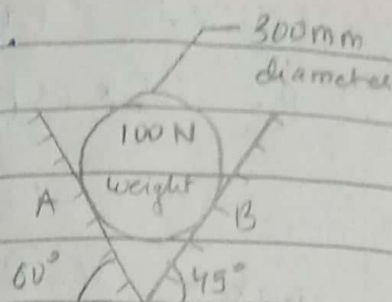 300mm
diameter
100 N
weight
A
B
60°
45°